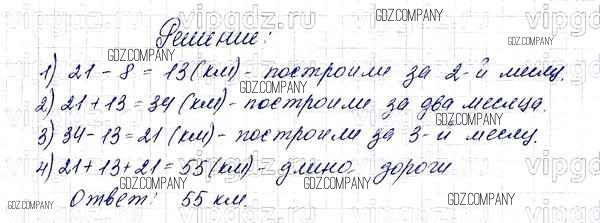 Решение:
1) 21 - 8 = 13 (км) - построили за 2-й месяц.
2) 21 + 13 = 34 (км) - построили за два месяца.
3) 34 - 13 = 21 (км) - построили за 3-й месяц.
4) 21 + 13 + 21 = 55 (км) - длина дороги
Ответ: 55 км.
GDZ.COMPANY
vipgdz.ru